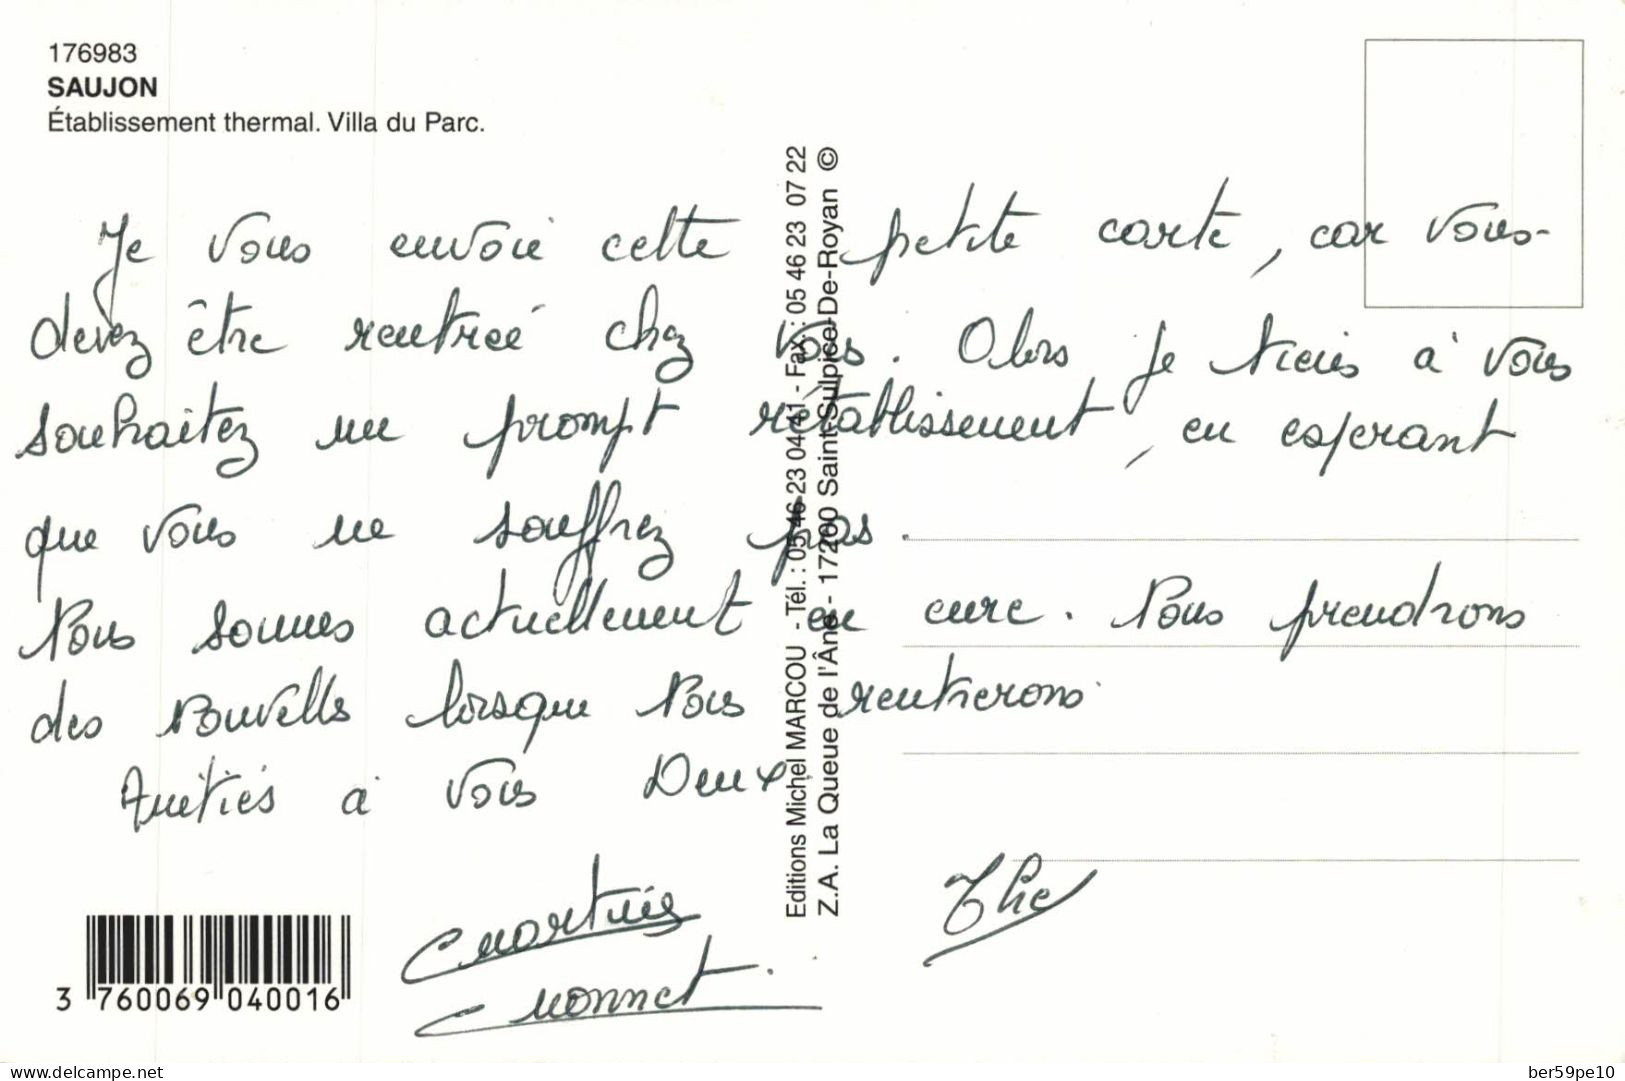 176983
SAUJON
Établissement thermal. Villa du Parc.
Je vous envoie cette petite carte, car vous-
devez être rentreé chez vous. Alors je tiens à vous
souhaitez un prompt rétablissement, en esperant
que vous ne souffrez pas.
Nous sommes actuellement en cure. Nous prendrons
des nouvelles lorsque nous rentrerons
Amitiés à vous Deux.
Monnet
Editions Michel MARCOU - Tél. : 05 46 23 04 41 - Fax : 05 46 23 07 22
Z.A. La Queue de l'Âne - 17200 Saint-Sulpice-De-Royan ©
3 760069 040016
https://www.delcampe.net
ber59pe10